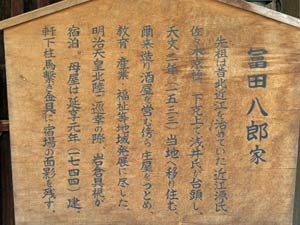 冨田八郎家
先祖は昔北近江を治めていた近江源氏
佐々木京極 下克上で浅井氏が台頭し、
天文二年(一五三三)当地へ移り住む。
爾来造り酒屋を営む傍ら庄屋をつとめ
教育 産業 福祉等地域発展に尽した。
明治天皇北陸ご巡幸の際、岩倉具視が
宿泊 母屋は延享元年(一七四四)建、
軒下柱馬繋ぎ金具に宿場の面影を残す。